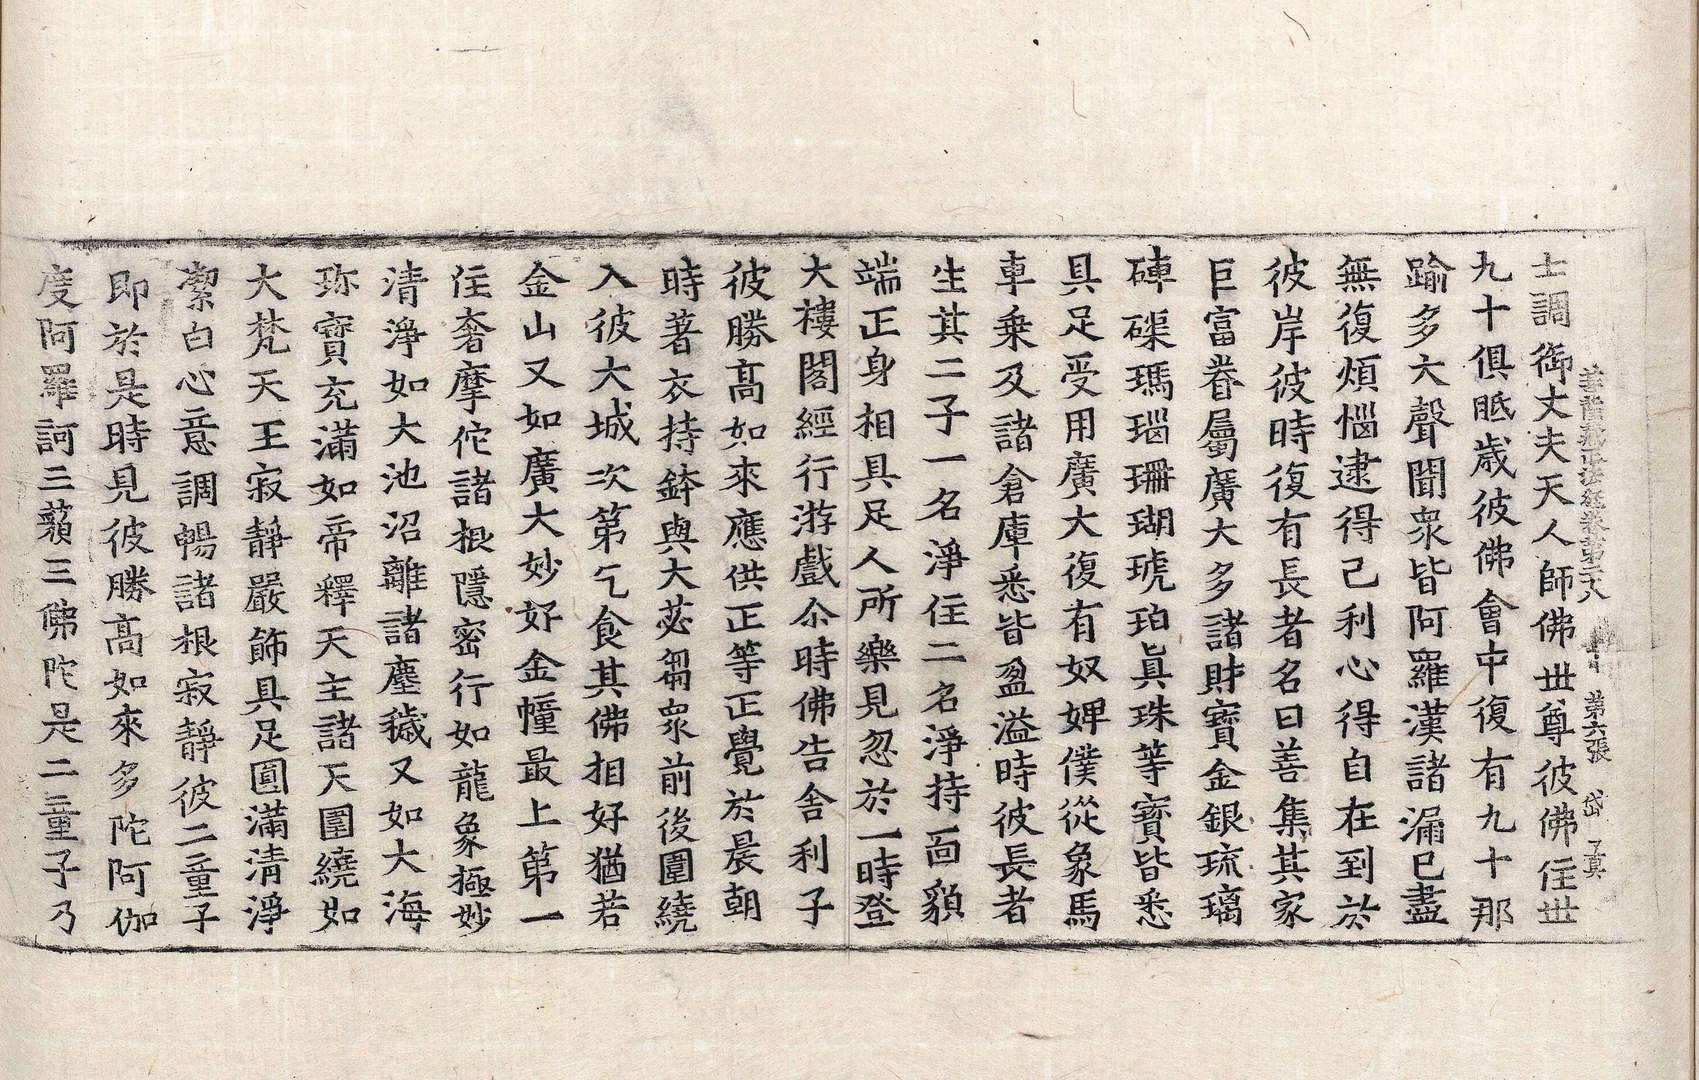 菩薩藏正法經卷第二八 第六張 岱
士調御丈夫天人師佛世尊彼佛住世
九十俱胝歳彼佛會中復有九十那
踰多大聲聞衆皆阿羅漢諸漏已盡
無復煩惱逮得己利心得自在到於
彼岸彼時復有長者名曰善集其家
巨富眷屬廣大多諸財寶金銀琉璃
硨磲瑪瑙珊瑚琥珀真珠等寶皆悉
具足受用廣大復有奴婢僕從象馬
車乗及諸倉庫悉皆盈溢時彼長者
生其二子一名淨住二名淨持面貌
端正身相具足人所樂見忽於一時登
大樓閣經行游戲尒時佛告舎利子
彼勝髙如來應供正等正覺於晨朝
時著衣持鉢與大苾芻衆前後圍繞
入彼大城次第乞食其佛相好猶若
金山又如廣大妙好金幢最上第一
住奢摩佗諸根隱密行如龍象極妙
清淨如大池沼離諸塵穢又如大海
珎寶充滿如帝釋天主諸天圍繞如
大梵天王寂静嚴飾具足圓滿清淨
潔白心意調暢諸根寂靜彼二童子
即於是時見彼勝髙如來多陀阿伽
度阿羅訶三藐三佛陀是二童子乃